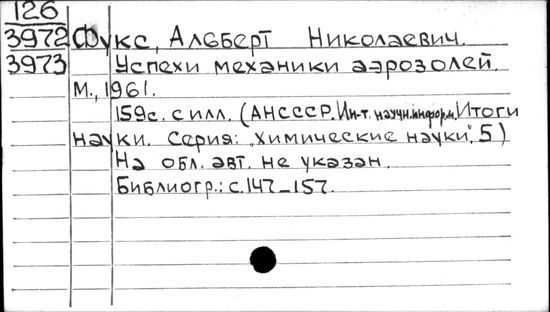 126
3972 Фукс, Альберт Николаевич.
3973 Успехи механики аэрозолей.
М., 1961.
159с. с илл. (АНСССР. Ин-т. научн. информ. Итоги
науки. Серия: „Химические науки", 5)
На обл. авт. не указан.
Библиогр.: с. 147-157.